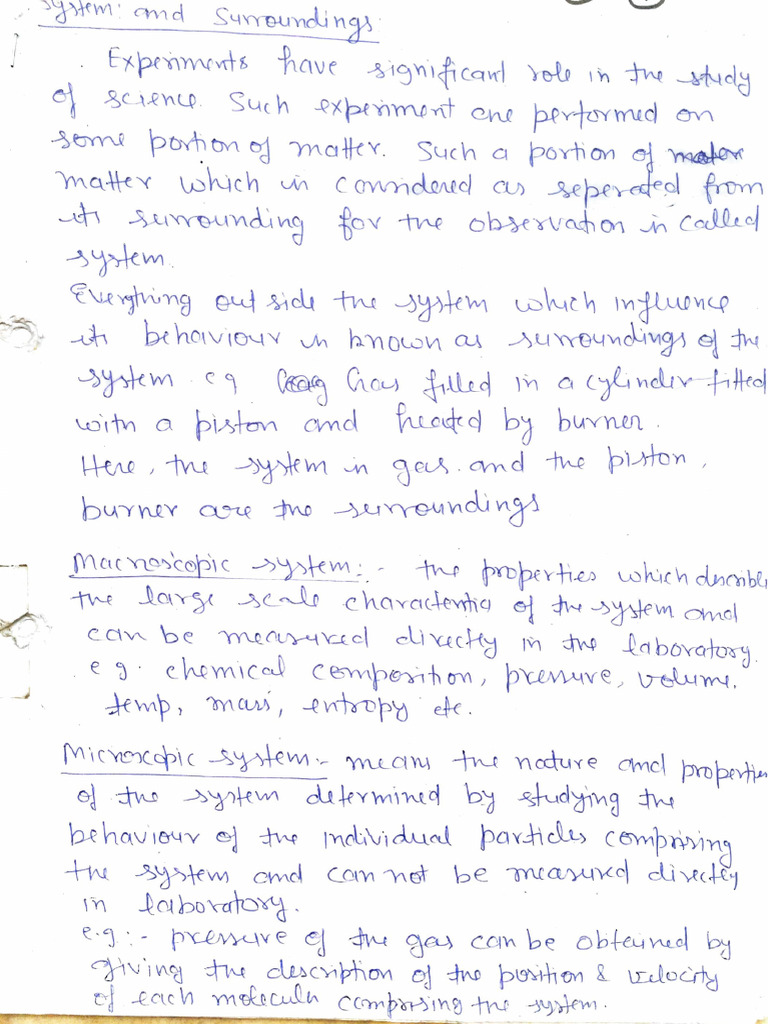 System: and Surroundings
Experiments have significant role in the study
of science. Such experiment are performed on
some portion of matter. Such a portion of
matter which is considered as seperated from
its surrounding for the observation is called
system.
Everything out side the system which influence
its behaviour is known as surroundings of the
system eg Gas filled in a cylinder fitted
with a piston and heated by burner.
Here, the system is gas. and the piston,
burner are the surroundings
Macroscopic system:- the properties which describe
the large scale characteristics of the system and
can be measured directly in the laboratory.
e g. chemical composition, pressure, volume.
temp, mass, entropy etc.
Microscopic system:- means the nature and properties
of the system determined by studying the
behaviour of the individual particles comprising
the system and can not be measured directly
in laboratory.
e.g:- pressure of the gas can be obtained by
giving the description of the position & velocity
of each molecule comprising the system.